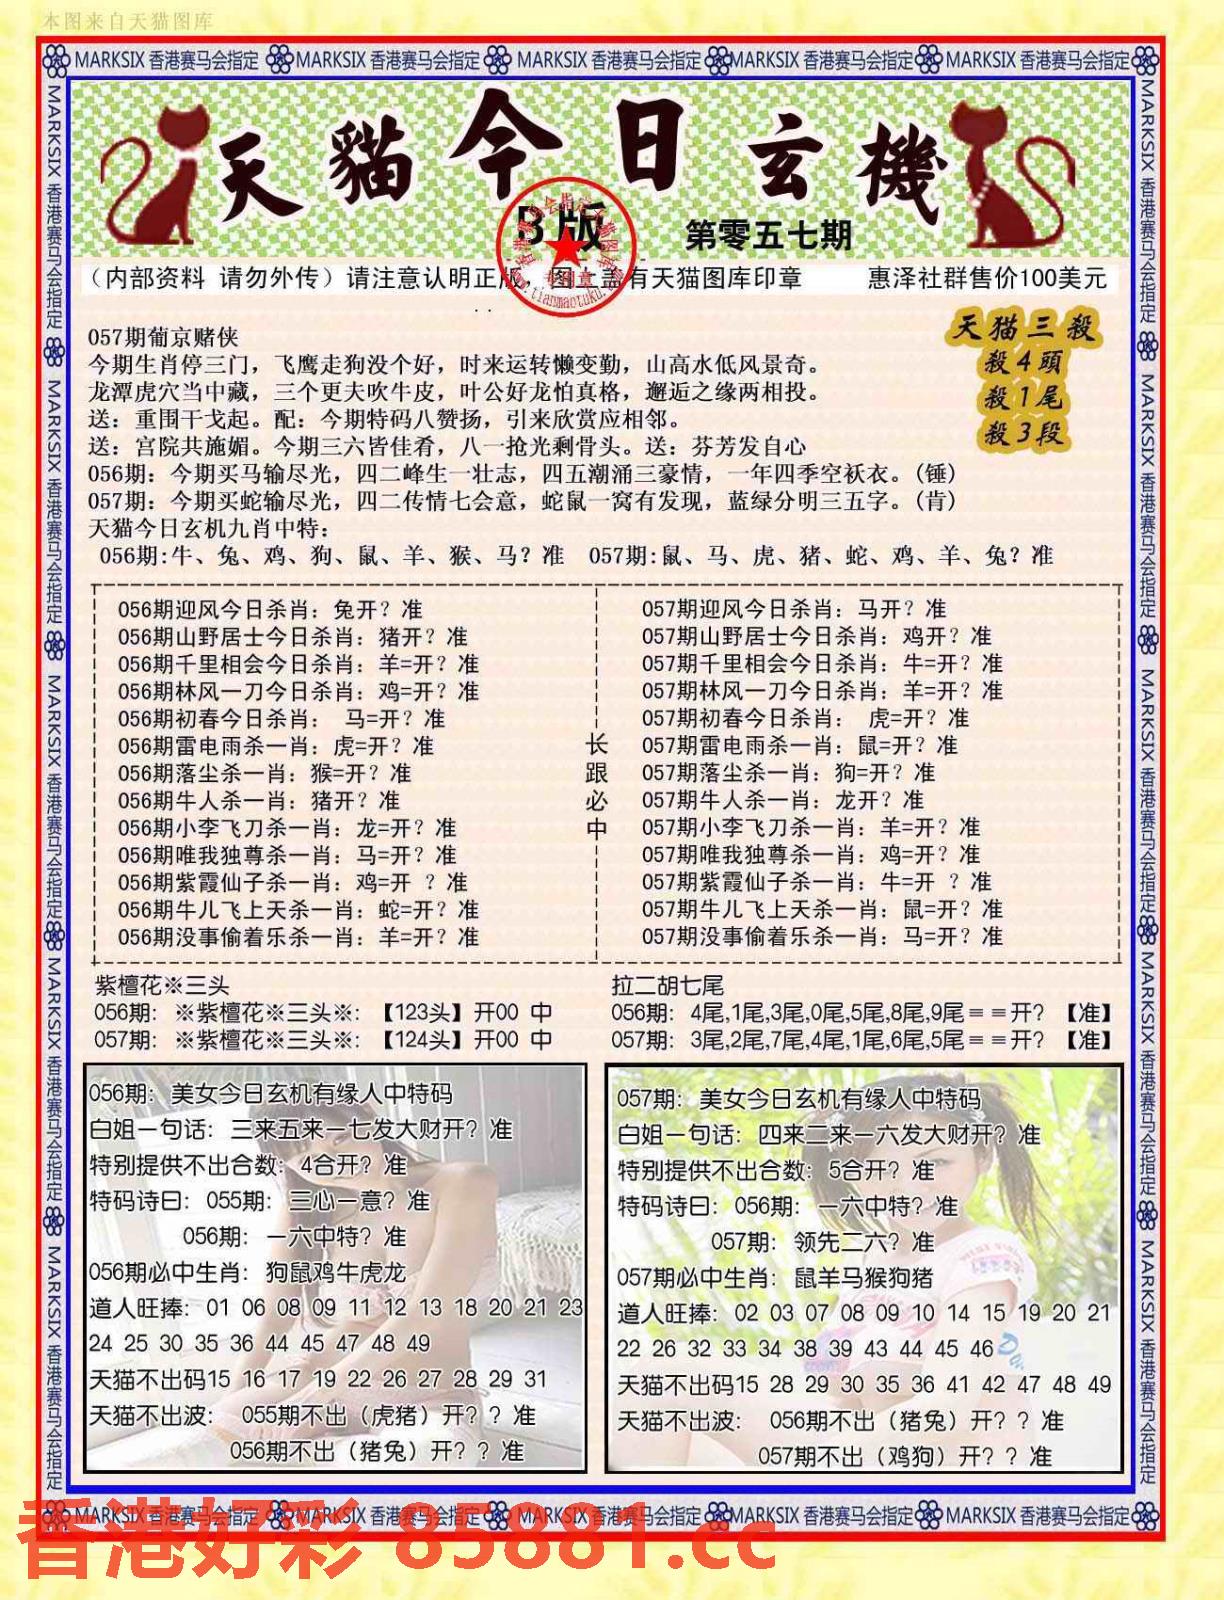 本图来自天猫图库
MARKSIX 香港赛马会指定 MARKSIX 香港赛马会指定 MARKSIX 香港赛马会指定 MARKSIX 香港赛马会指定 MARKSIX 香港赛马会指定
天貓今日玄機
B版
第零五七期
(内部资料 请勿外传)请注意认明正版 图 盖有天猫图库印章 惠泽社群售价100美元
专图章
www.tianmaotuku.
天猫三殺
殺4頭
殺1尾
殺3段
057期葡京赌侠
今期生肖停三门，飞鹰走狗没个好，时来运转懒变勤，山高水低风景奇。
龙潭虎穴当中藏，三个更夫吹牛皮，叶公好龙怕真格，邂逅之缘两相投。
送：重围干戈起。配：今期特码八赞扬，引来欣赏应相邻。
送：宫院共施媚。今期三六皆佳肴，八一抢光剩骨头。送：芬芳发自心
056期：今期买马输尽光，四二峰生一壮志，四五潮涌三豪情，一年四季空袄衣。(锤)
057期：今期买蛇输尽光，四二传情七会意，蛇鼠一窝有发现，蓝绿分明三五字。(肯)
天猫今日玄机九肖中特：
056期:牛、兔、鸡、狗、鼠、羊、猴、马？准 057期:鼠、马、虎、猪、蛇、鸡、羊、兔？准
056期迎风今日杀肖：兔开？准
056期山野居士今日杀肖：猪开？准
056期千里相会今日杀肖：羊=开？准
056期林风一刀今日杀肖：鸡=开？准
056期初春今日杀肖： 马=开？准
056期雷电雨杀一肖：虎=开？准
056期落尘杀一肖：猴=开？准
056期牛人杀一肖：猪开？准
056期小李飞刀杀一肖：龙=开？准
056期唯我独尊杀一肖：马=开？准
056期紫霞仙子杀一肖：鸡=开 ？准
056期牛儿飞上天杀一肖：蛇=开？准
056期没事偷着乐杀一肖：羊=开？准
长跟必中
057期迎风今日杀肖：马开？准
057期山野居士今日杀肖：鸡开？准
057期千里相会今日杀肖：牛=开？准
057期林风一刀今日杀肖：羊=开？准
057期初春今日杀肖： 虎=开？准
057期雷电雨杀一肖：鼠=开？准
057期落尘杀一肖：狗=开？准
057期牛人杀一肖：龙开？准
057期小李飞刀杀一肖：羊=开？准
057期唯我独尊杀一肖：鸡=开？准
057期紫霞仙子杀一肖：牛=开 ？准
057期牛儿飞上天杀一肖：鼠=开？准
057期没事偷着乐杀一肖：马=开？准
紫檀花※三头
056期：※紫檀花※三头※：【123头】开00 中
057期：※紫檀花※三头※：【124头】开00 中
拉二胡七尾
056期：4尾,1尾,3尾,0尾,5尾,8尾,9尾＝＝开？【准】
057期：3尾,2尾,7尾,4尾,1尾,6尾,5尾＝＝开？【准】
056期：美女今日玄机有缘人中特码
白姐一句话：三来五来一七发大财开？准
特别提供不出合数：4合开？准
特码诗曰：055期：三心一意？准
056期：一六中特？准
056期必中生肖：狗鼠鸡牛虎龙
道人旺捧：01 06 08 09 11 12 13 18 20 21 23
24 25 30 35 36 44 45 47 48 49
天猫不出码15 16 17 19 22 26 27 28 29 31
天猫不出波： 055期不出（虎猪）开？？准
056期不出（猪兔）开？？准
057期：美女今日玄机有缘人中特码
白姐一句话：四来二来一六发大财开？准
特别提供不出合数：5合开？准
特码诗曰：056期：一六中特？准
057期：领先二六？准
057期必中生肖：鼠羊马猴狗猪
道人旺捧：02 03 07 08 09 10 14 15 19 20 21
22 26 32 33 34 38 39 43 44 45 46
天猫不出码15 28 29 30 35 36 41 42 47 48 49
天猫不出波： 056期不出（猪兔）开？？准
057期不出（鸡狗）开？？准
MARKSIX 香港赛马会指定 MARKSIX 香港赛马会指定 MARKSIX 香港赛马会指定 MARKSIX 香港赛马会指定 MARKSIX 香港赛马会指定
MARKSIX 香港赛马会指定 MARKSIX 香港赛马会指定 MARKSIX 香港赛马会指定 MARKSIX 香港赛马会指定 MARKSIX 香港赛马会指定
MARKSIX 香港赛马会指定 MARKSIX 香港赛马会指定 MARKSIX 香港赛马会指定 MARKSIX 香港赛马会指定 MARKSIX 香港赛马会指定
香港好彩 85881.cc